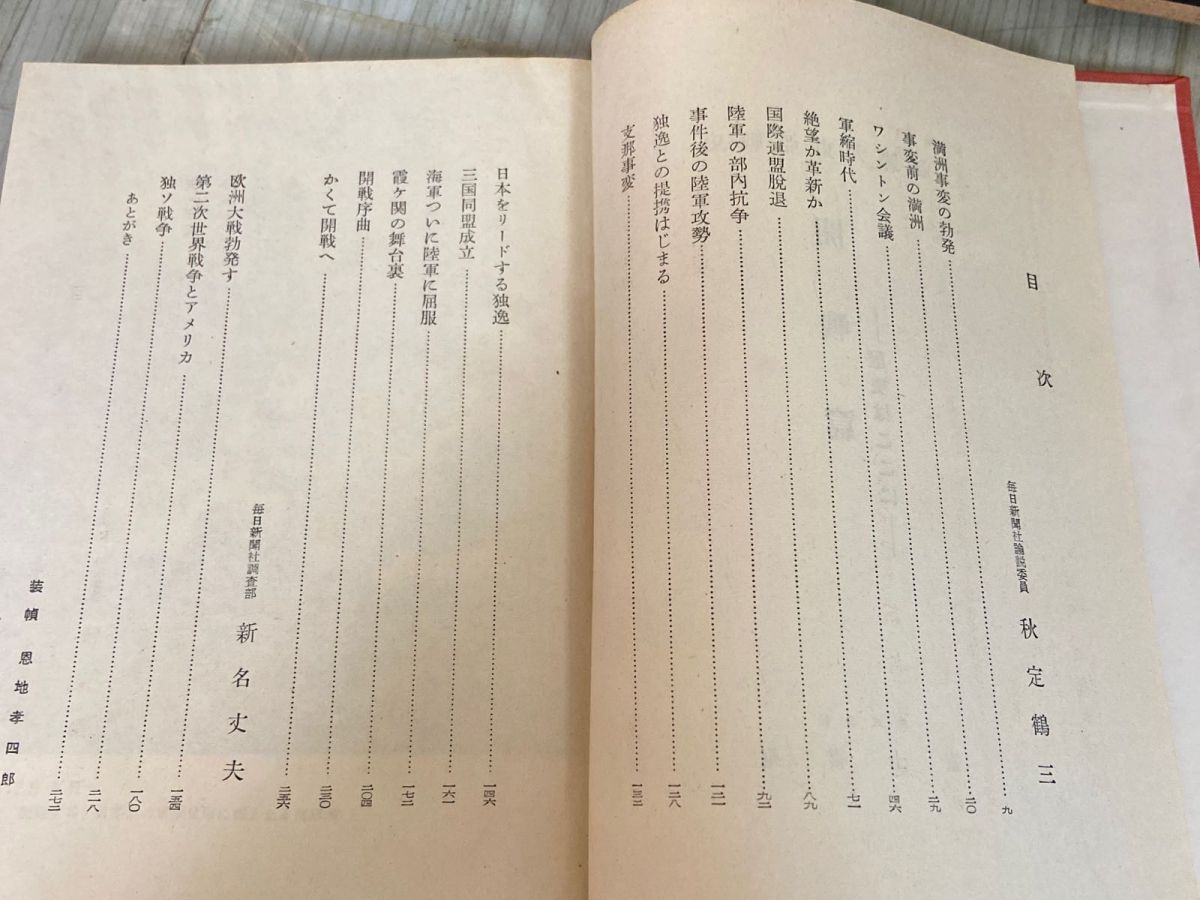 目次
毎日新聞社論説委員 秋定鶴三
満洲事変の勃発……九
事変前の満洲……二〇
ワシントン会議……二九
軍縮時代……四六
絶望か革新か……七一
国際連盟脱退……八九
陸軍の部内抗争……九二
事件後の陸軍攻勢……一二一
独逸との提携はじまる……一二八
支那事変……一三二
日本をリードする独逸……一四六
三国同盟成立……一六一
海軍ついに陸軍に屈服……一七二
霞ヶ関の舞台裏……二〇四
開戦序曲……二三〇
かくて開戦へ……二五六
毎日新聞社調査部 新名丈夫
欧洲大戦勃発す……一五四
第二次世界戦争とアメリカ……一八〇
独ソ戦争……二一八
あとがき……二七二
装幀 恩地孝四郎